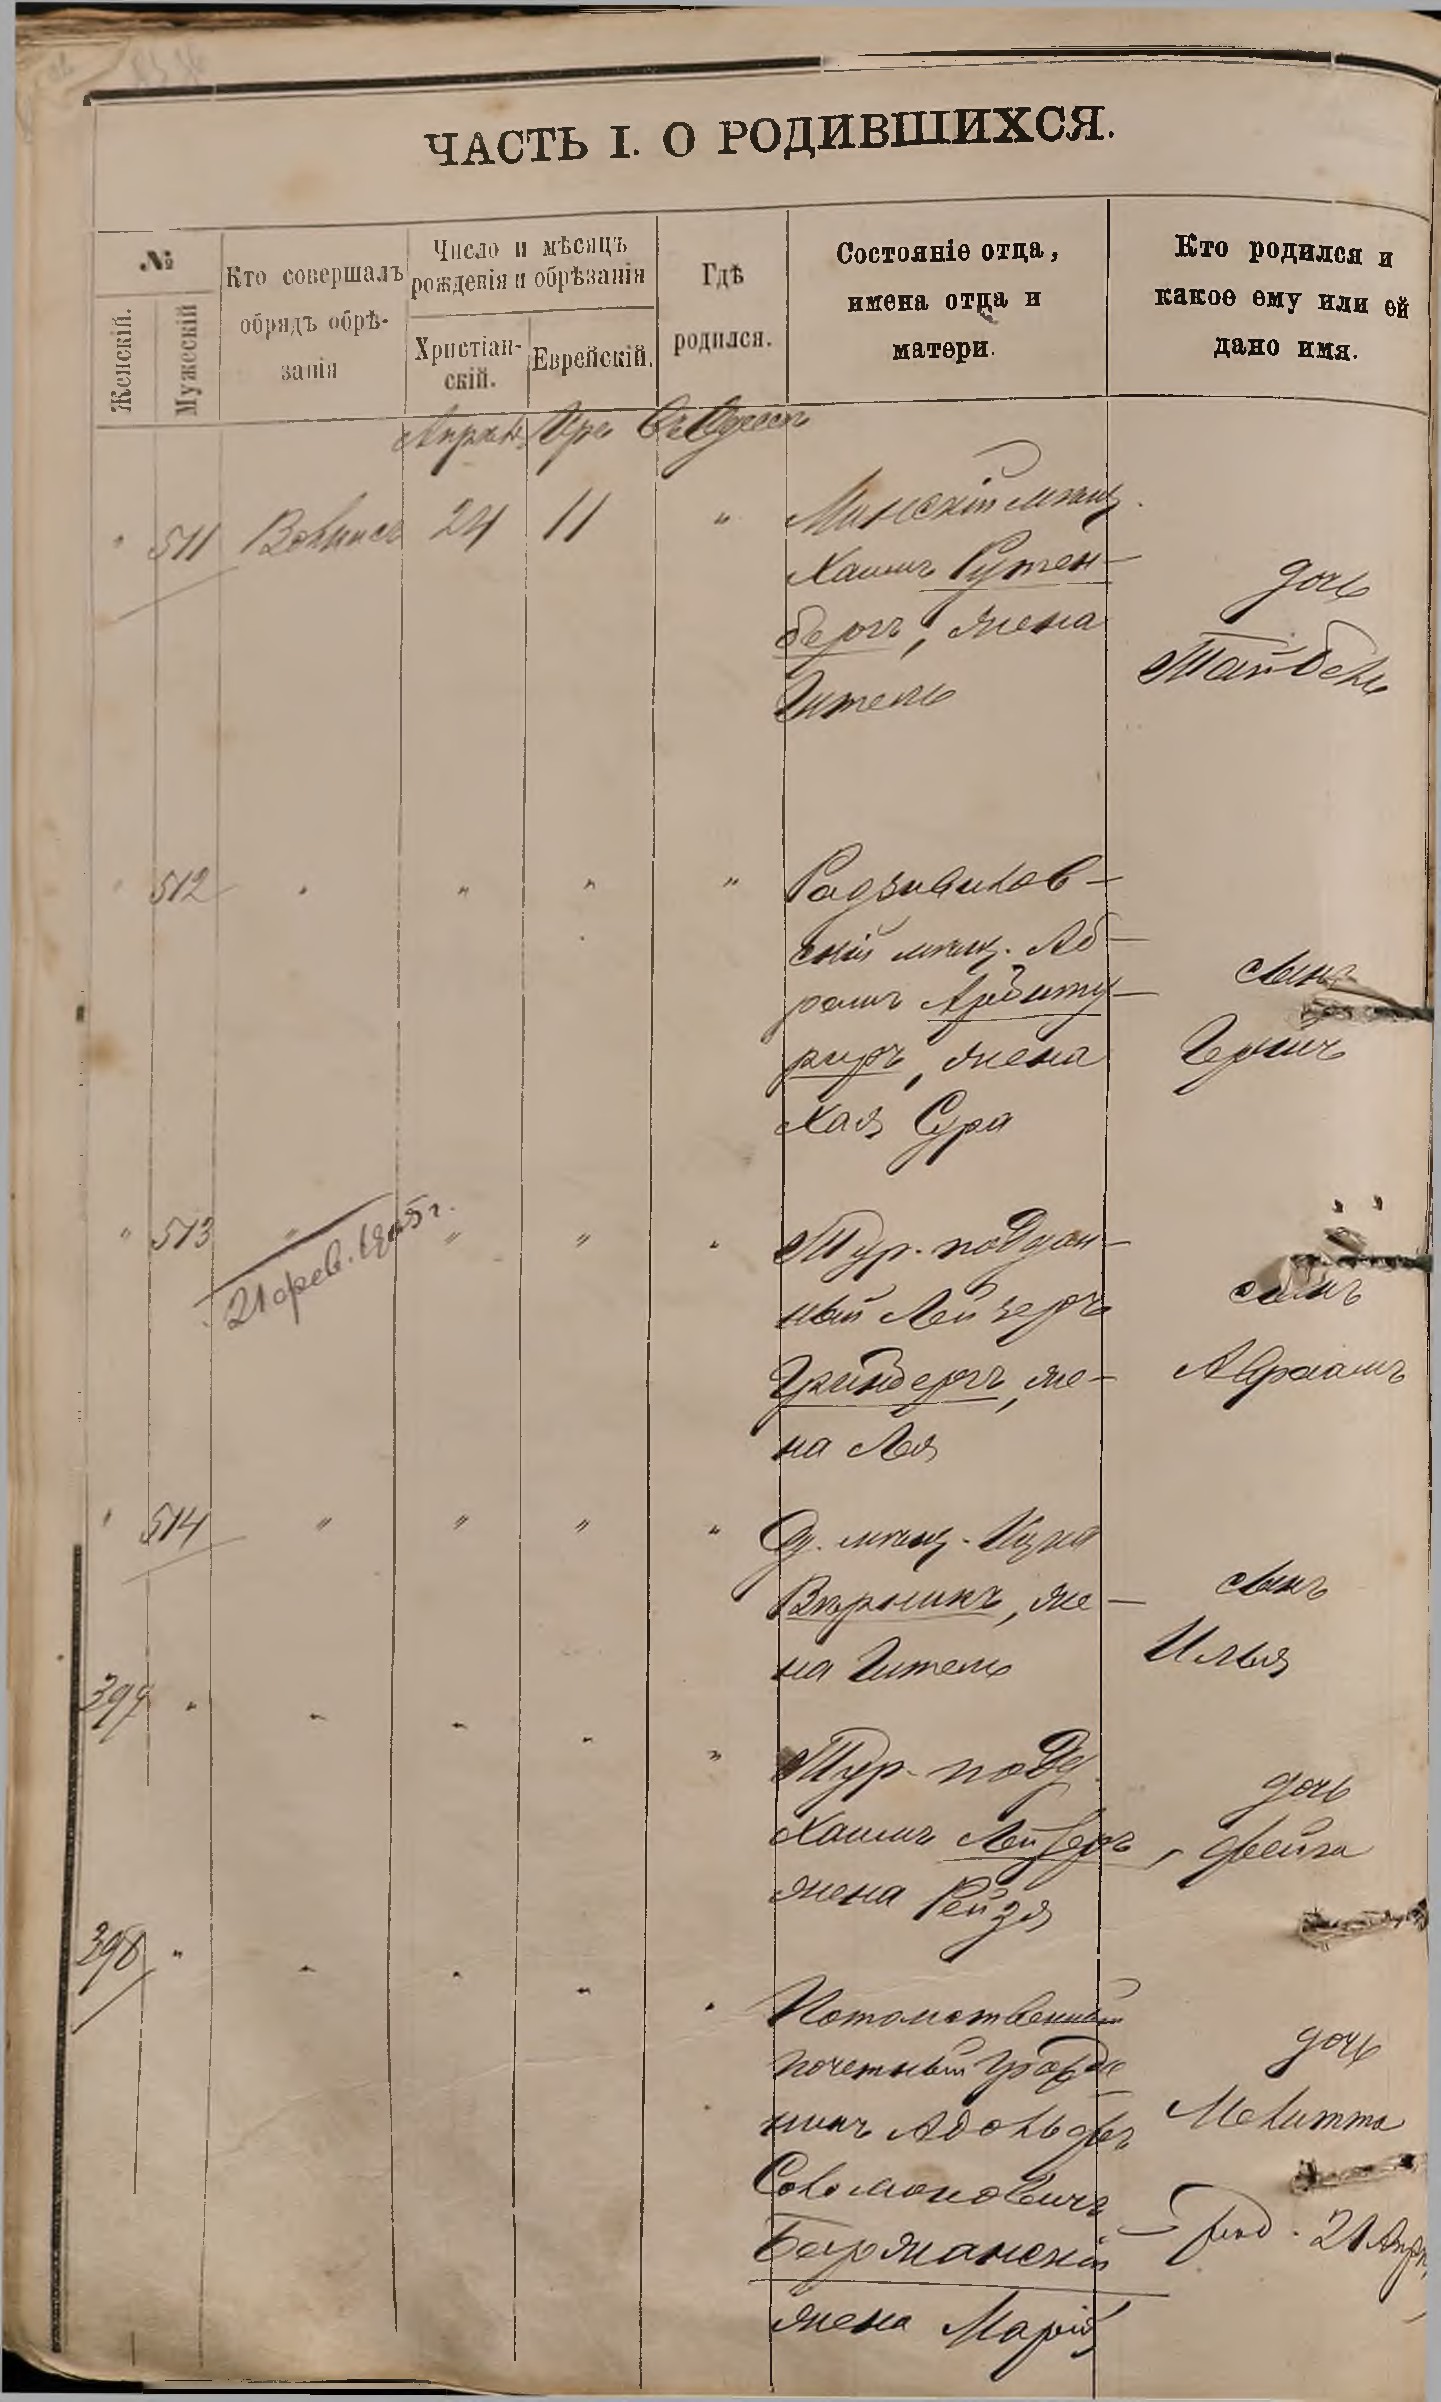 ЧАСТЬ I. О РОДИВШИХСЯ.
№
Женскій.
Мужескій
Кто совершалъ
обрядъ обрѣ-
занія
Число и мѣсяцъ
рожденія и обрѣзанія
Христіан-
скій.
Еврейскій.
Гдѣ
родился.
Состояніе отца,
имена отца и
матери.
Кто родился и
какое ему или ей
дано имя.
Апрѣль Іаръ Въ Одессѣ
" 511 24 11 " Минскій мѣщ.
Хаимъ Рутен-
бергъ, жена
Гитель
дочь
Тайбель
" 512 " " " " Радзивилов-
скій мѣщ. Аб-
рамъ Арбиту-
риръ, жена
Хая Сура
сынъ
Гершъ
" 513 " " " " Тур. поддан-
ный Лейзеръ
Гринбергъ, же-
на Лея
21 фев. 1905 г.
сынъ
Авраамъ
" 514 " " " " Од. мѣщ. Ицко
Вѣрникъ, же-
на Гитель
сынъ
Илья
397 " " " " " Тур. подд.
Хаимъ Лейзеръ,
жена Рейзя
дочь
Фейга
398 " " " " " Потомственный
почетный гражда-
нинъ Адольфъ
Соломоновичъ
Бержанскій
жена Марія
дочь
Мелитта
род. 21 Апр.